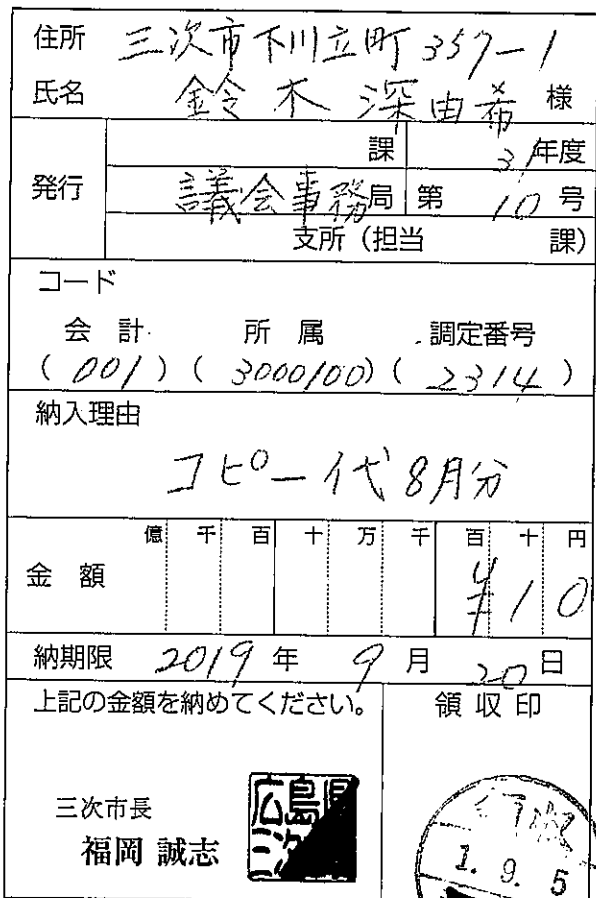 住所 三次市下川立町357-1
氏名 鈴木 深由希 様
課 31年度
発行 議会事務局 第 10 号
支所(担当 課)
コード
会計 所属 調定番号
(001)(3000100)(2314)
納入理由
コピー代8月分
億 千 百 十 万 千 百 十 円
金額 ¥10
納期限 2019年 9月 20日
上記の金額を納めてください。 領収印
三次市長
福岡 誠志
広島県
1. 9. 5